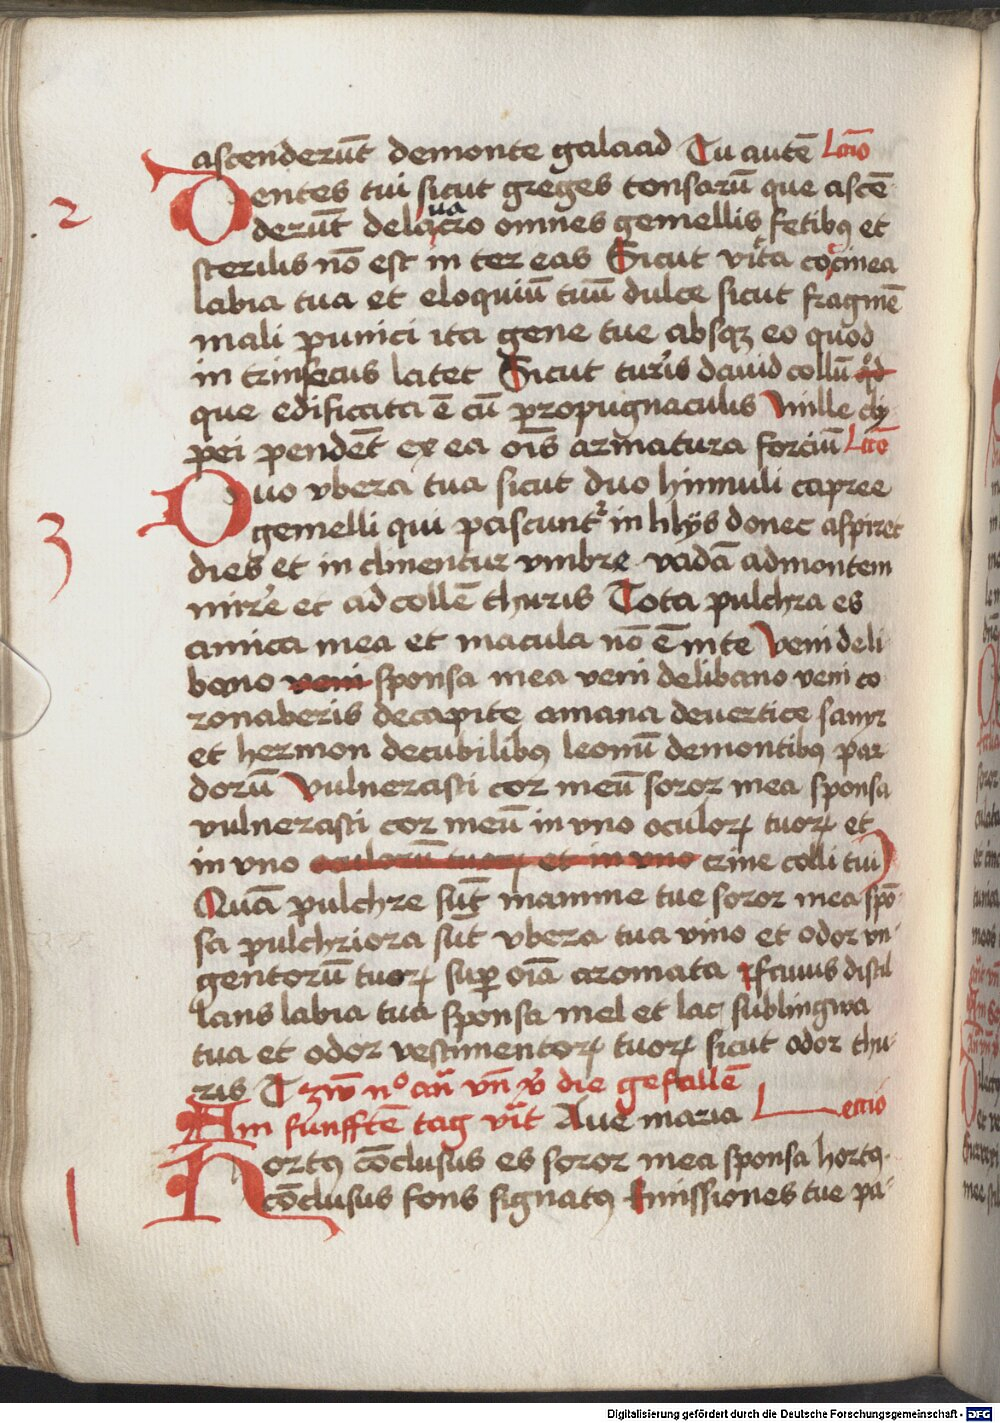 ascenderūt demonte galaad Tu autē Lcō
2 Dentes tui sicut greges tonsarū que ascē
derūt delacro omnes gemellis fetibꝯ et
ua
sterilis nō est in ter eas Sicut vitta cocinea
labia tua et eloquiū tuū dulce sicut fragmē
mali punici ita gene tue absqꝫ eo quod
in trinsecus latet Sicut turris dauid collū
que edificata ē cū propugnaculis Mille cly
pei pendēt ex ea oīs armatura forciū Lcō
3 Duo vbera tua sicut duo hinnuli capree
gemelli qui pascuntr in lilijs donec aspiret
dies et in clinentur vmbre vadā admontem
mirre et ad collē thuris Tota pulchra es
amica mea et macula nō ē inte Veni deli
bano veni sponsa mea veni delibano veni co
ronaberis decapite amana deuertice sanyr
et hermon decubilibꝯ leonū demontibꝯ par
dorū Vulnerasti cor meū soror mea sponsa
vulnerasti cor meū in vno oculoꝝ tuoꝝ et
in vno oculorū tuoꝝ et in vno crine colli tui
Quā pulchre sūt mamme tue soror mea spō
sa pulchriora sūt vbera tua vino et odor vn
gentorū tuoꝝ suꝑ oīa aromata Fauus distil
lans labia tua sponsa mel et lac sub lingwa
tua et odor vestimentoꝝ tuoꝝ sicut odor thu
ris die gefallē
Am funfftē tag Aue maria Lectio
1 Hortꝯ cōclusus es soror mea sponsa hortꝯ
cōclusus fons signatꝯ Emissiones tue pa
Digitalisierung gefördert durch die Deutsche Forschungsgemeinschaft - DFG